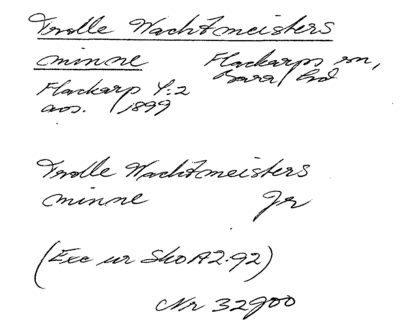 Trolle Wachtmeisters
minne Flackarps sn,
Flackarp 4:2 Bara hd
avs. 1899
Trolle Wachtmeisters
minne Jr
(Exc ur SkoA2.92)
Nr 32900